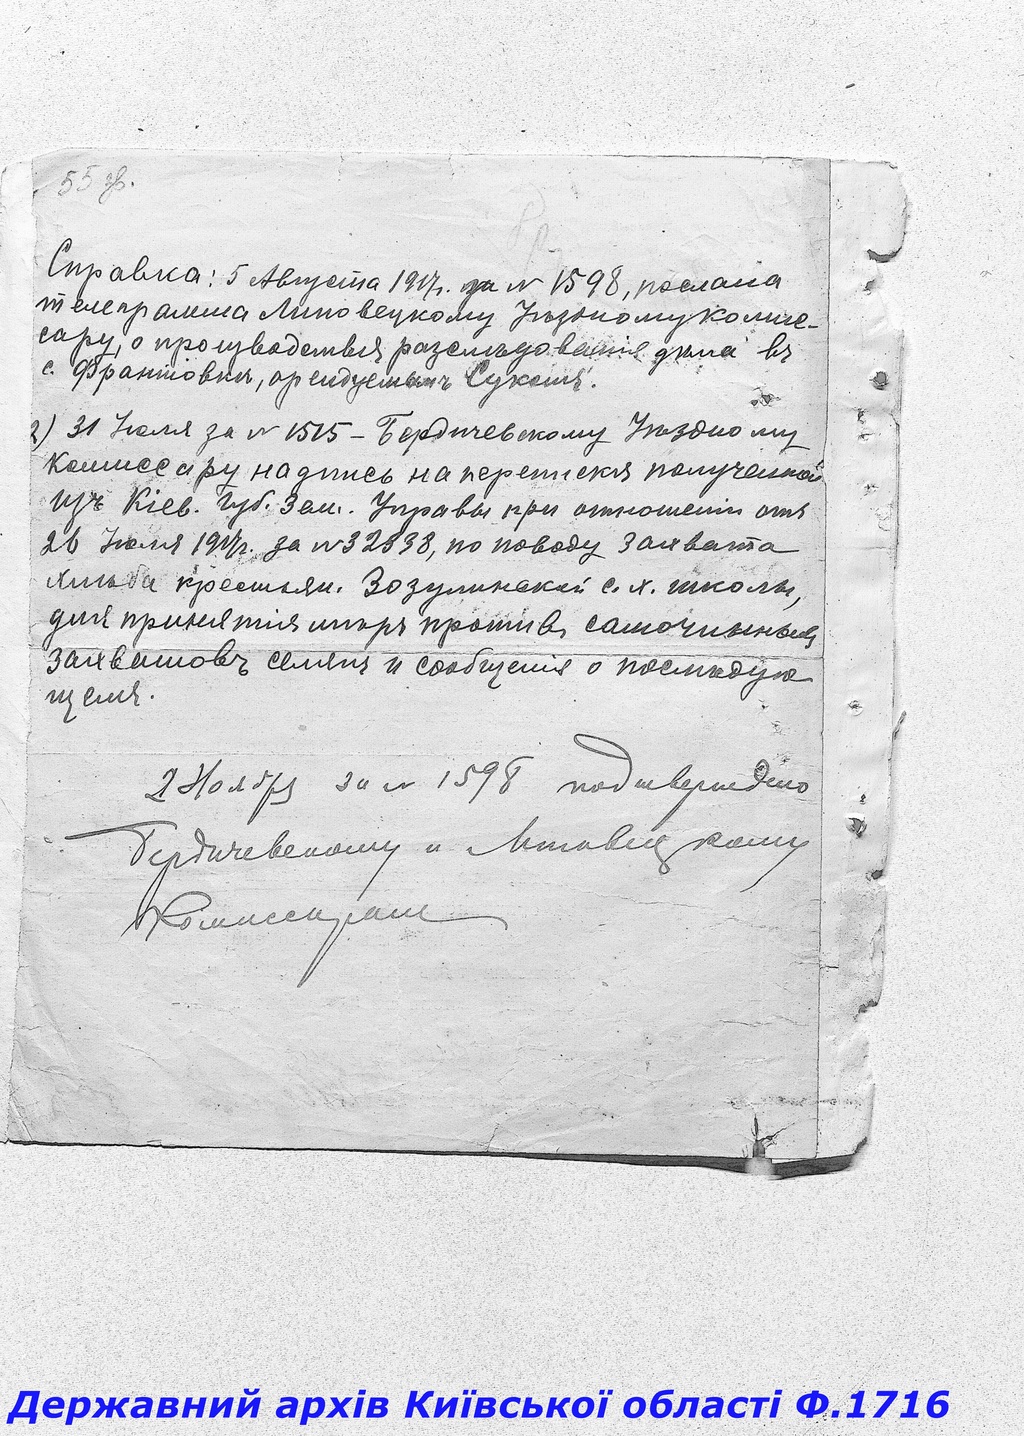 55 зв.
Справка: 5 Августа 1917г. за № 1598, послана
телеграмма Липовецкому Уѣздному комис-
сару, о производствѣ разслѣдованія дѣла въ
с. Франтовкѣ, арендуемомъ
2) 31 Июля за № 1515 – Бердичевскому Уѣздному
Комиссару надпись на перепискѣ полученной
изъ Кіев. Губ. Зем. Управы при отношеніи отъ
26 Июля 1917г. за №32338, по поводу захвата
хлѣба крестьян. Зозулинской с. х. школы,
для принятія мѣръ противъ самочинныхъ
захватовъ земли и сообщенія о послѣдую
щемъ.
2 Ноября за № 1598 подтверждено
Бердичевскому и Липовецкому
Комиссарам
Державний архів Київської області Ф.1716